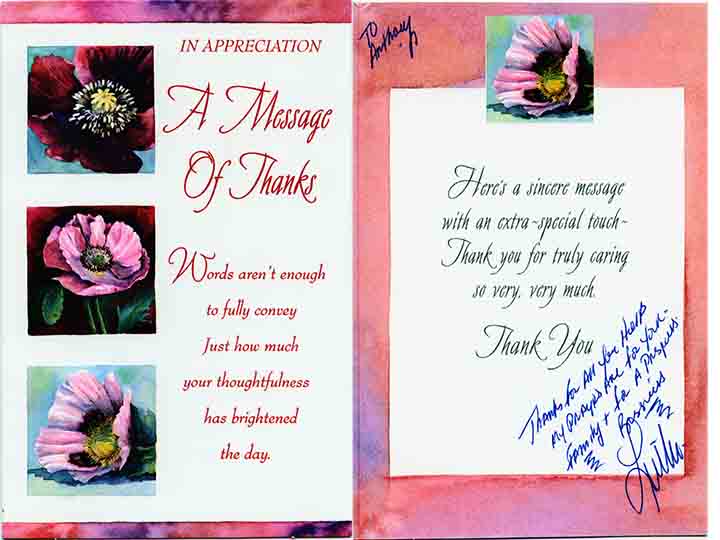 IN APPRECIATION
A Message
Of Thanks
Words aren't enough
to fully convey
Just how much
your thoughtfulness
has brightened
the day.
To
Anthony
Here's a sincere message
with an extra-special touch-
Thank you for truly caring
so very, very much.
Thank You
Thanks for All You
My Prayers Are for Your
Family + for A
Business